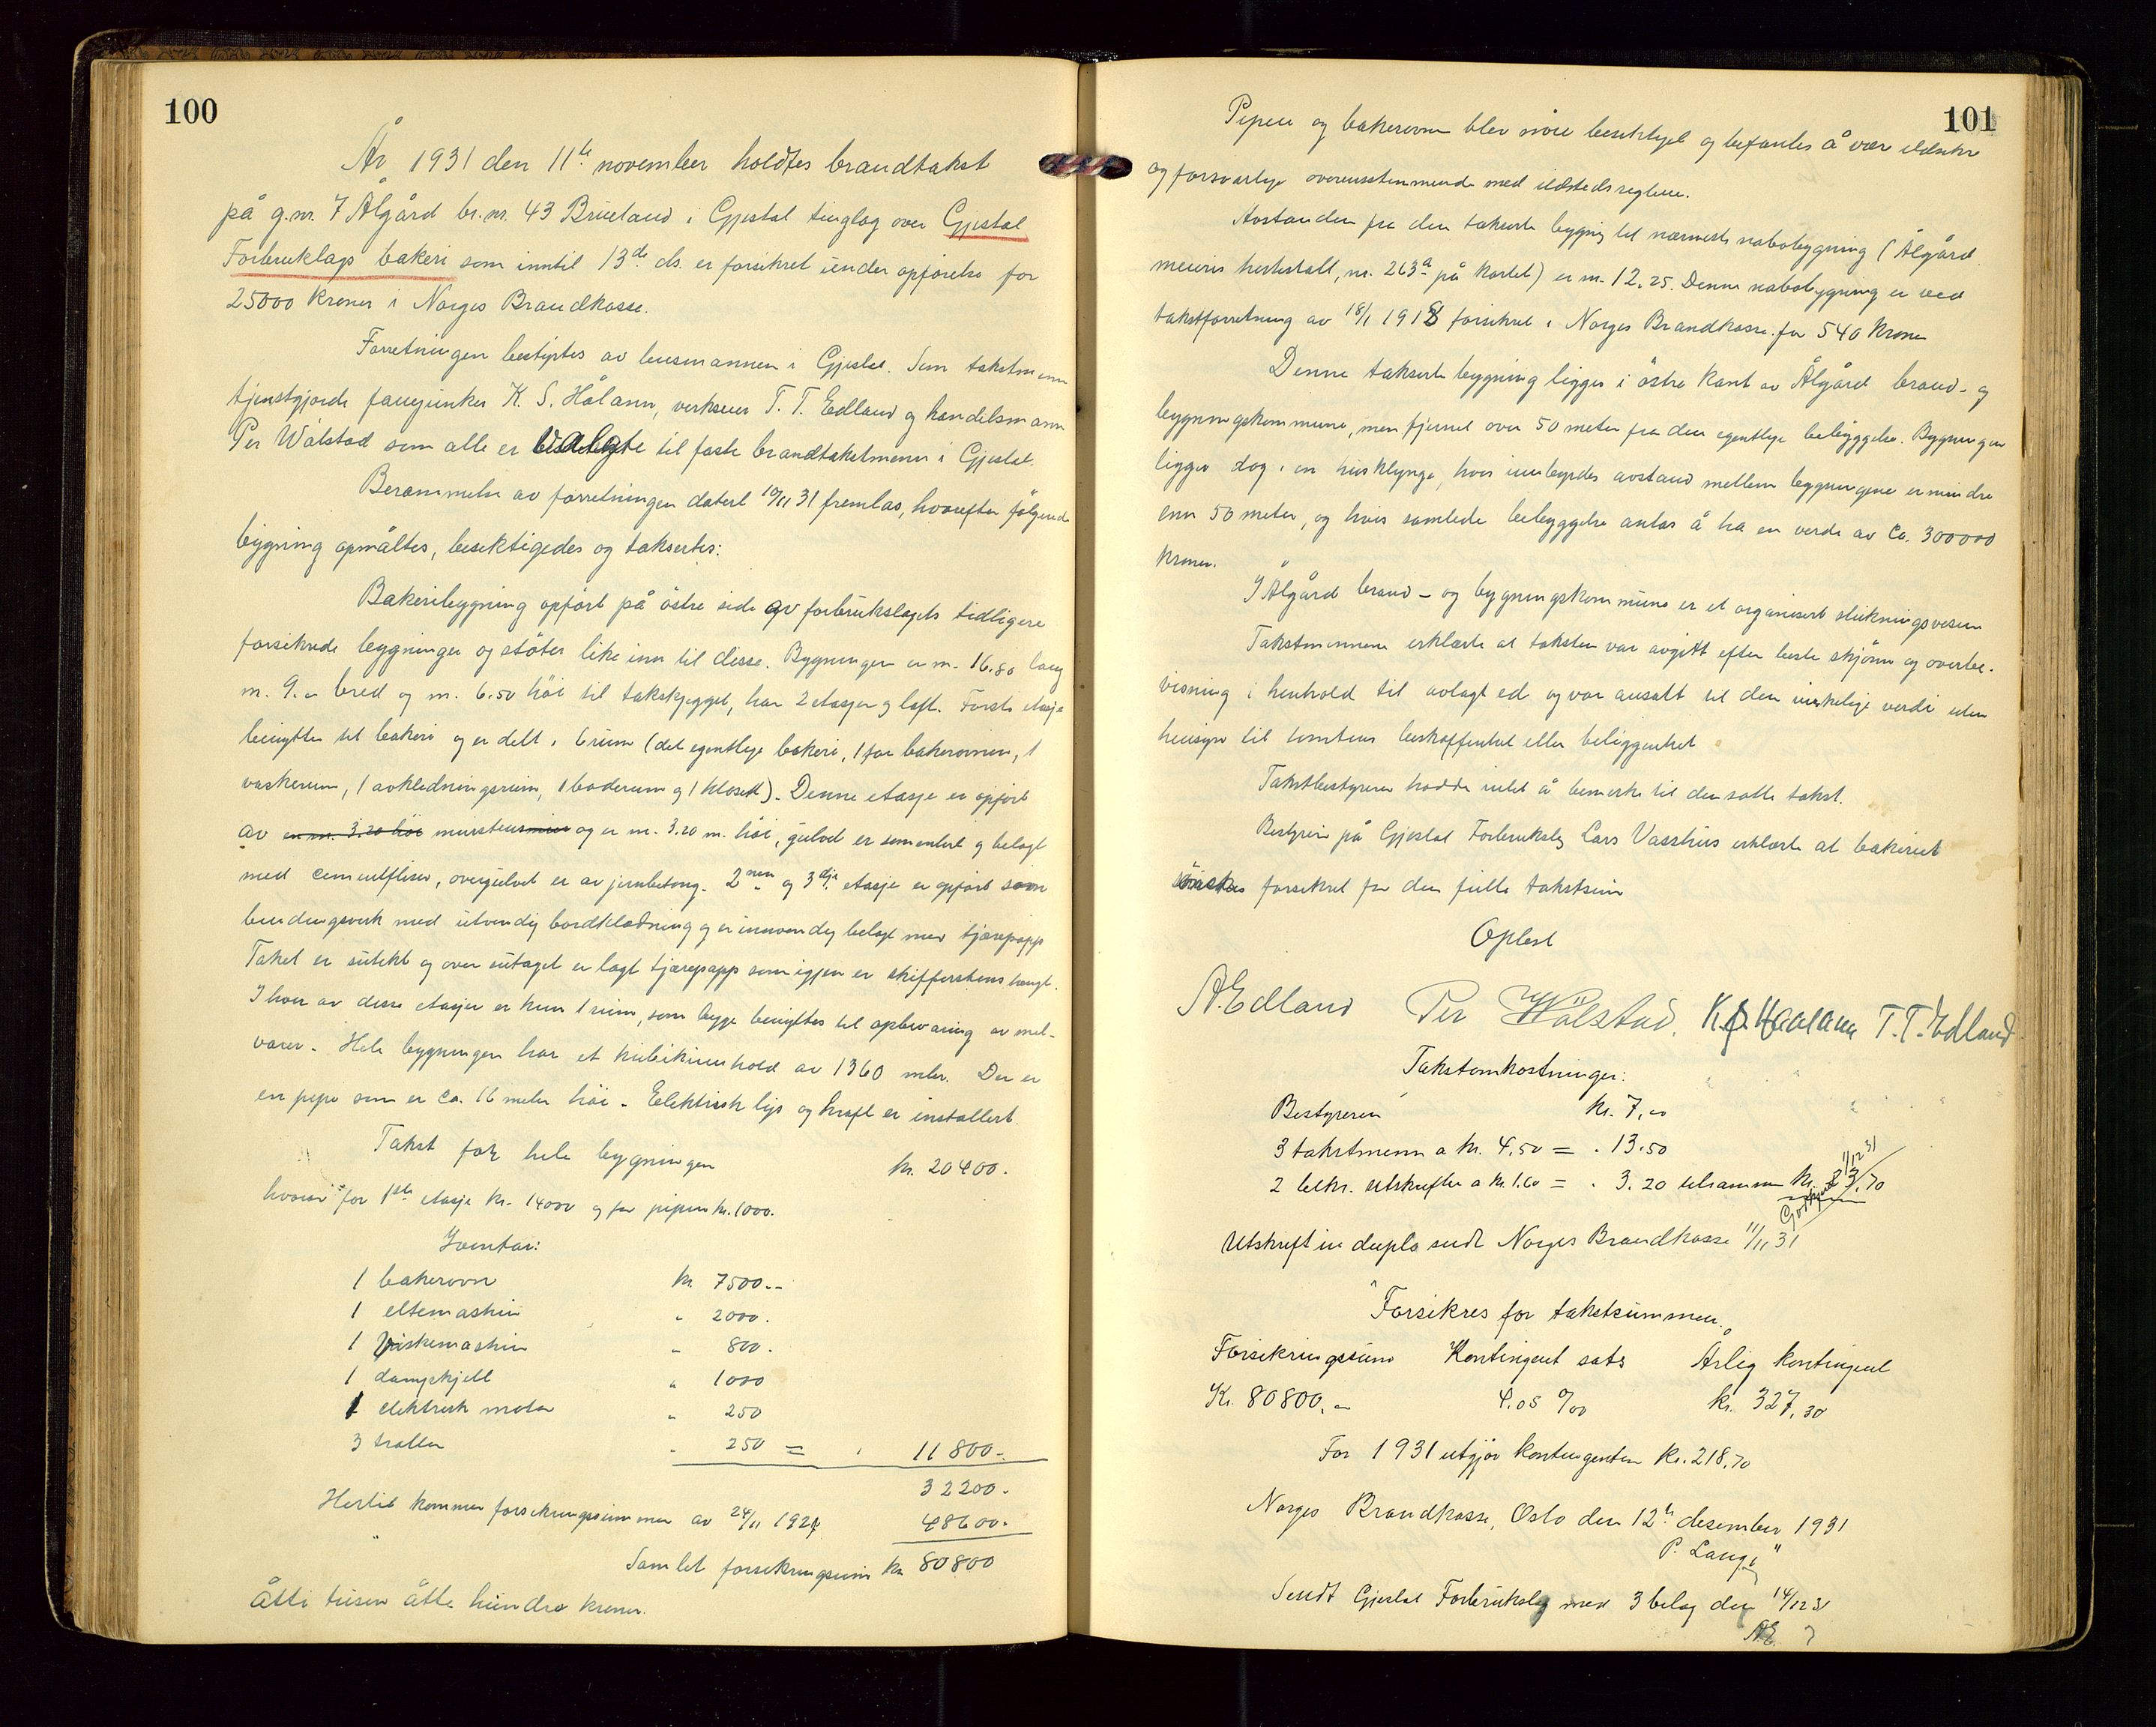 100
År 1931 den 11te november holdtes brandtakst
på g.nr. 7 Ålgård br.nr. 43 Brueland i Gjestal tinglag over Gjestal
Forbrukslags bakeri som inntil 13de ds. er forsikret under opførelse for
25000 kroner i Norges Brandkasse.
Forretningen bestyrtes av lensmannen i Gjestal. Som takstmenn
tjenstgjorde fanejunker K. S. Hålann, verkseier T. T. Edland og handelsmann
Per Wålstad som alle er valgte til faste brandtakstmenn i Gjestal.
Berammelse av forretningen datert 10/11 31 fremlas, hvorefter følgende
bygning opmåltes, besiktigedes og taksertes:
Bakeribygning opført på östre side av forbrukslagets tidligere
forsikrede bygninger og stöter like inn til disse. Bygningen er m. 16.80 lang
m. 9.00 bred og m. 6.50 höi til takskjegget, har 2 etasjer og loft. Forste etasje
benyttes til bakeri og er delt i 6 rum (det egentlige bakeri, 1 for bakerovnen, 1
vaskerum, 1 avkledningsrum, 1 baderum og 1 klosett). Denne etasje er opfört
av en m. 3.20 höi murstensmur og er m. 3.20 m. höi, gulvet er sementert og belagt
med cementfliser, overgulvet er av jernbetong. 2nen og 3dje etasje er opfört som
bindingsverk med utvendig bordklædning og er innvendig belagt med tjærepapp
Taket er sutekt og over sutaget er lagt tjærepapp som igjen er skifferstenshengt.
I hver av disse etasjer er kun 1 rum, som begge benyttes til opbevaring av mel-
varer. Hele bygningen har et kubikinnhold av 1360 mtr. Der er
en pipe som er ca. 16 meter höi. Elektrisk lys og kraft er installert.
Takst for hele bygningen kr. 20400.
hvorav for 1ste etasje kr. 14000 og for pipen kr. 1000.
Inventar:
1 bakerovn kr. 7500.-
1 eltemaskin " 2000.
1 piskemaskin " 800.
1 dampkjell " 1000
1 elektrisk motor " 250
3 traller " 250 = " 11800.-
32200.
Hertil kommer forsikringssummen av 24/11 1927 48600.
Samlet forsikringssum kr. 80800
Åtti tusen åtte hundre kroner.
101
Pipen og bakerovnen blev nöie besiktiget og befantes å være ildsikre
og forsvarlige overensstemmende med ildstedsreglene.
Avstanden fra den takserte bygning til nærmeste nabobygning (Ålgård
meieris hestestall, nr. 263a på kartet) er m. 12.25. Denne nabobygning er ved
takstforretning av 18/1 1918 forsikret i Norges Brandkasse for 540 kroner
Denne takserte bygning ligger i östre kant av Ålgård brand- og
bygningskommune, men fjernet over 50 meter fra den egentlige bebyggelse. Bygningen
ligger dog i en husklynge, hvis innbyrdes avstand mellem bygningene er mindre
enn 50 meter, og hvis samlede bebyggelse antas å ha en verdi av ca. 300000
kroner.
I Ålgård brand- og bygningskommune er et organisert slukningsvesen
Takstmennene erklærte at taksten var avgitt efter beste skjönn og overbe-
visning i henhold til avlagt ed og var ansatt til den virkelige verdi uten
hensyn til tomtens beskaffenhet eller beliggenhet
Takstbestyreren hadde intet å bemerke til den satte takst.
Bestyrer på Gjestal Forbrukslag Lars Vasshus erklærte at bakeriet
önskes forsikret for den fulle takstsum
Oplest
A. Edland Per Wålstad. K. S. Haalann T. T. Edland
Takstomkostninger:
Bestyreren kr. 7,00
3 takstmenn a kr. 4,50 = " 13.50
2 bekr. utskrifter a kr. 1.60 = " 3.20 tilsammen kr. 23,70
1/12 31
Utskrift in duplo sendt Norges Brandkasse 11/11 31
"Forsikres for takstsummen.
Forsikringssum Kontingent sats Årlig kontingent
Kr. 80800,00 4.05 ‰ kr. 327,30
For 1931 utgjør kontingenten kr. 218,70
Norges Brandkasse, Oslo den 12te desember 1931
P. Lange"
Sendt Gjestal Forbrukslag med 3 bilag den 14/12 31
AE.